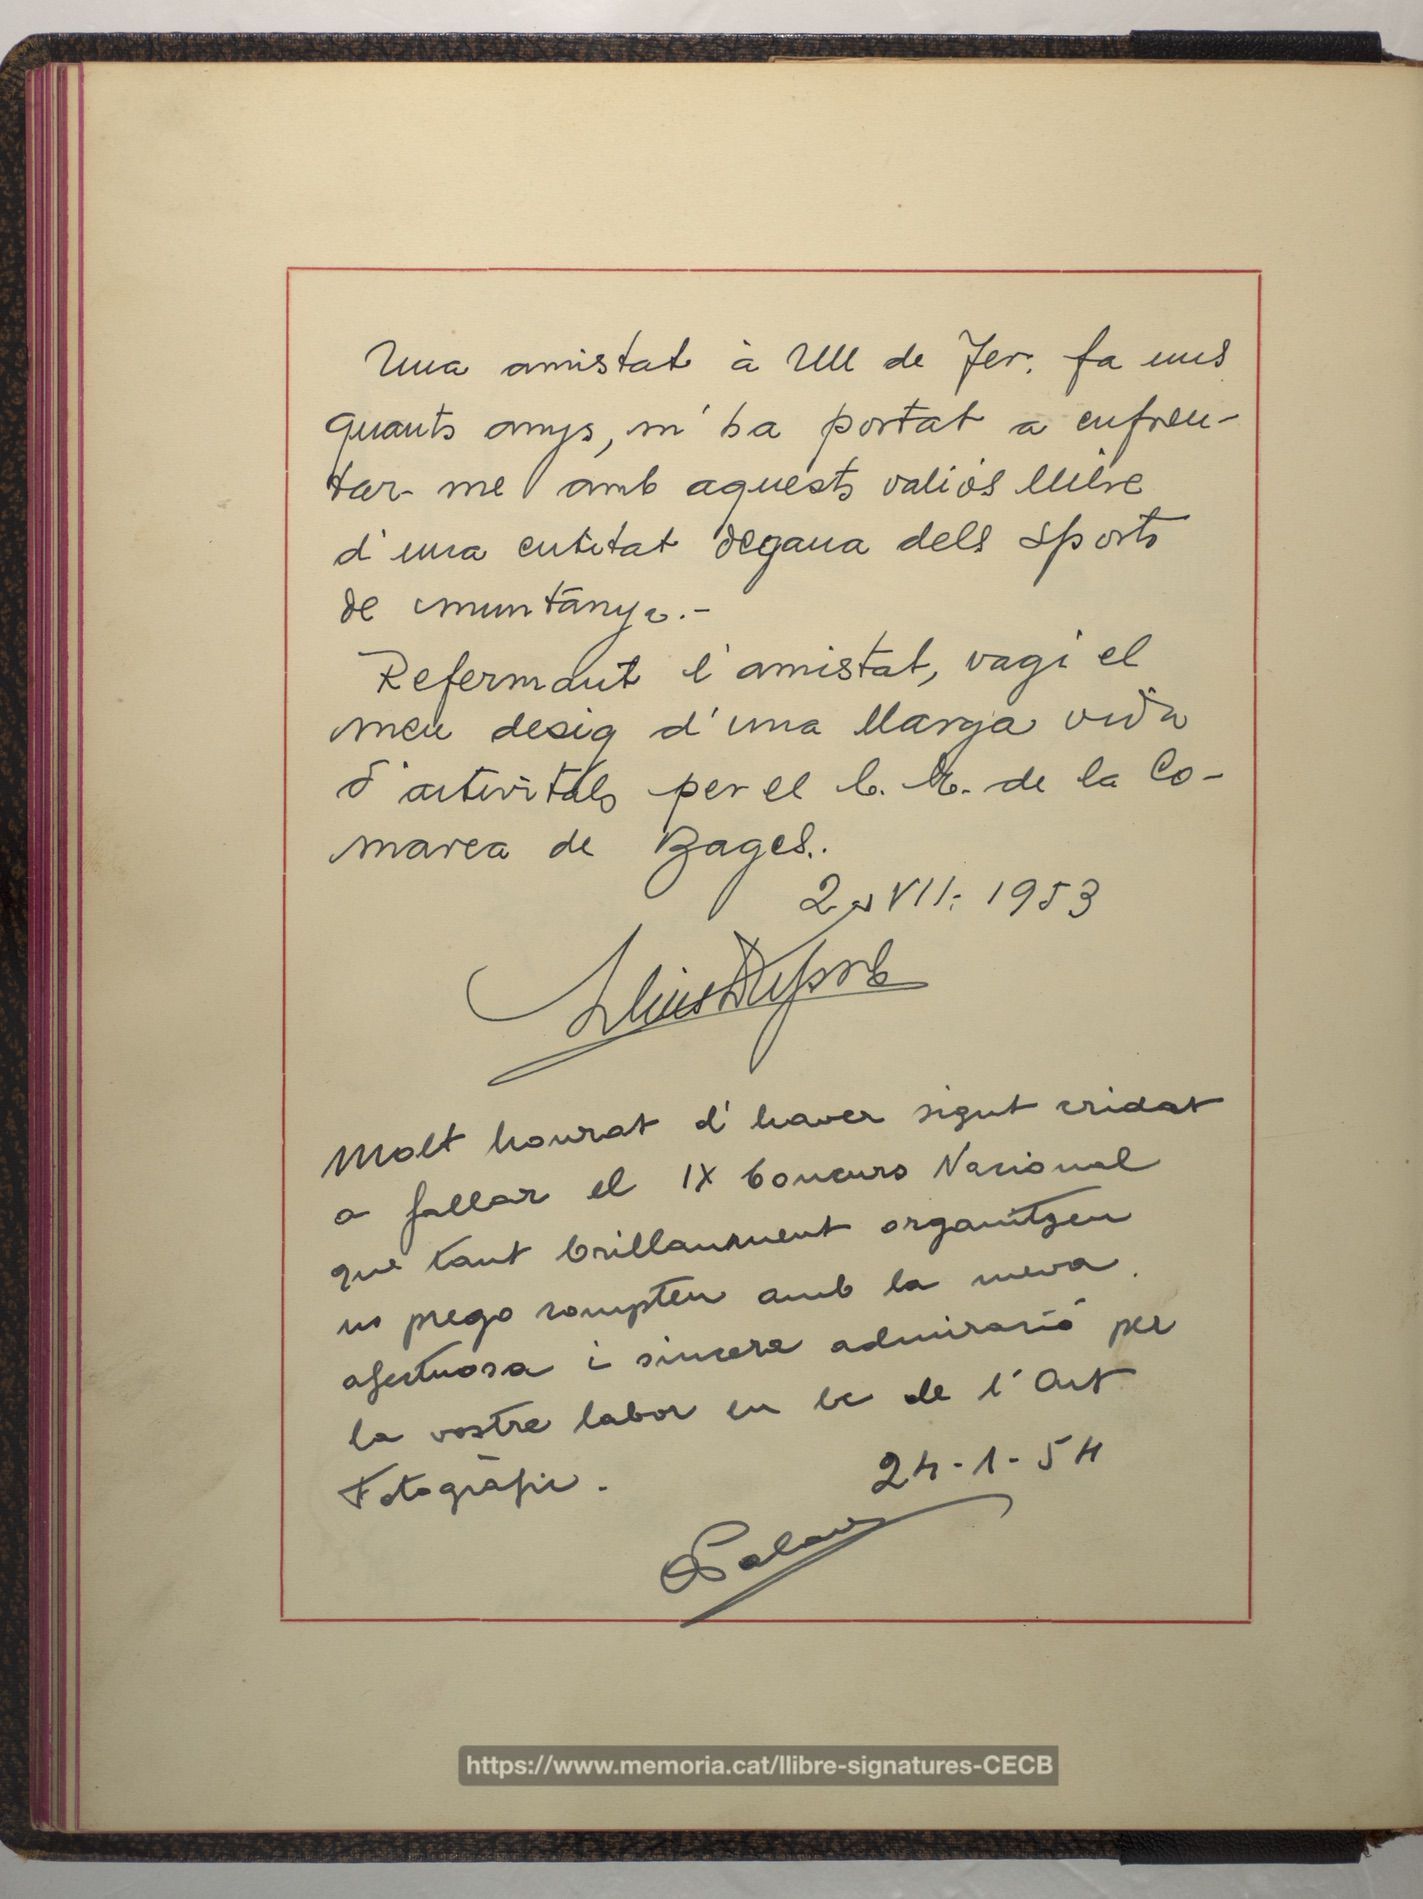 Una amistat à Ull de Ter. fa uns
quants anys, m'ha portat a enfren-
tar-me amb aquests valiós llibre
d'una entitat degana dels sports
de muntanya.-
Refermant l'amistat, vagi el
meu desig d'una llarga vida
d'activitats per el C. E. de la Co-
marca de Bages.
2 VII. 1953
Molt honrat d'haver sigut cridat
a fallar el IX Concurs Nacional
que tant brillantment organitzeu
us prego compteu amb la meva
afectuosa i sincera admiració per
la vostre labor en be de l'Art
Fotogràfic.
24-1-54
https://www.memoria.cat/llibre-signatures-CECB